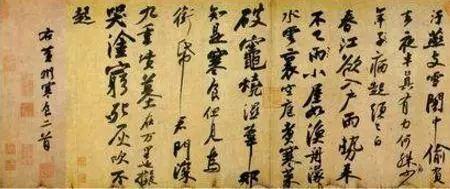 汙燕支雪闇中偷負
去夜半真有力何殊少
年子病起頭已白
春江欲入戶雨勢來
不已雨小屋如漁舟濛濛
水雲裏空庖煮寒菜
破竈燒濕葦那
知是寒食但見烏
銜帋君門深
九重墳墓在万里也擬
哭塗窮死灰吹不
起
右黃州寒食二首